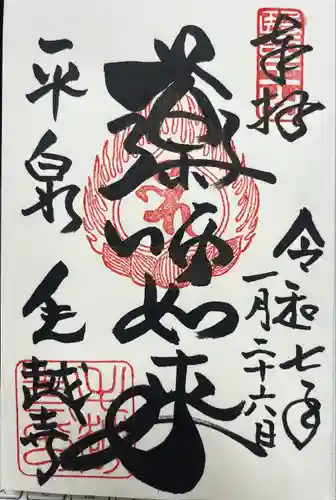 奉拝
令和七年
一月二十六日
薬師如来
平泉
毛越寺